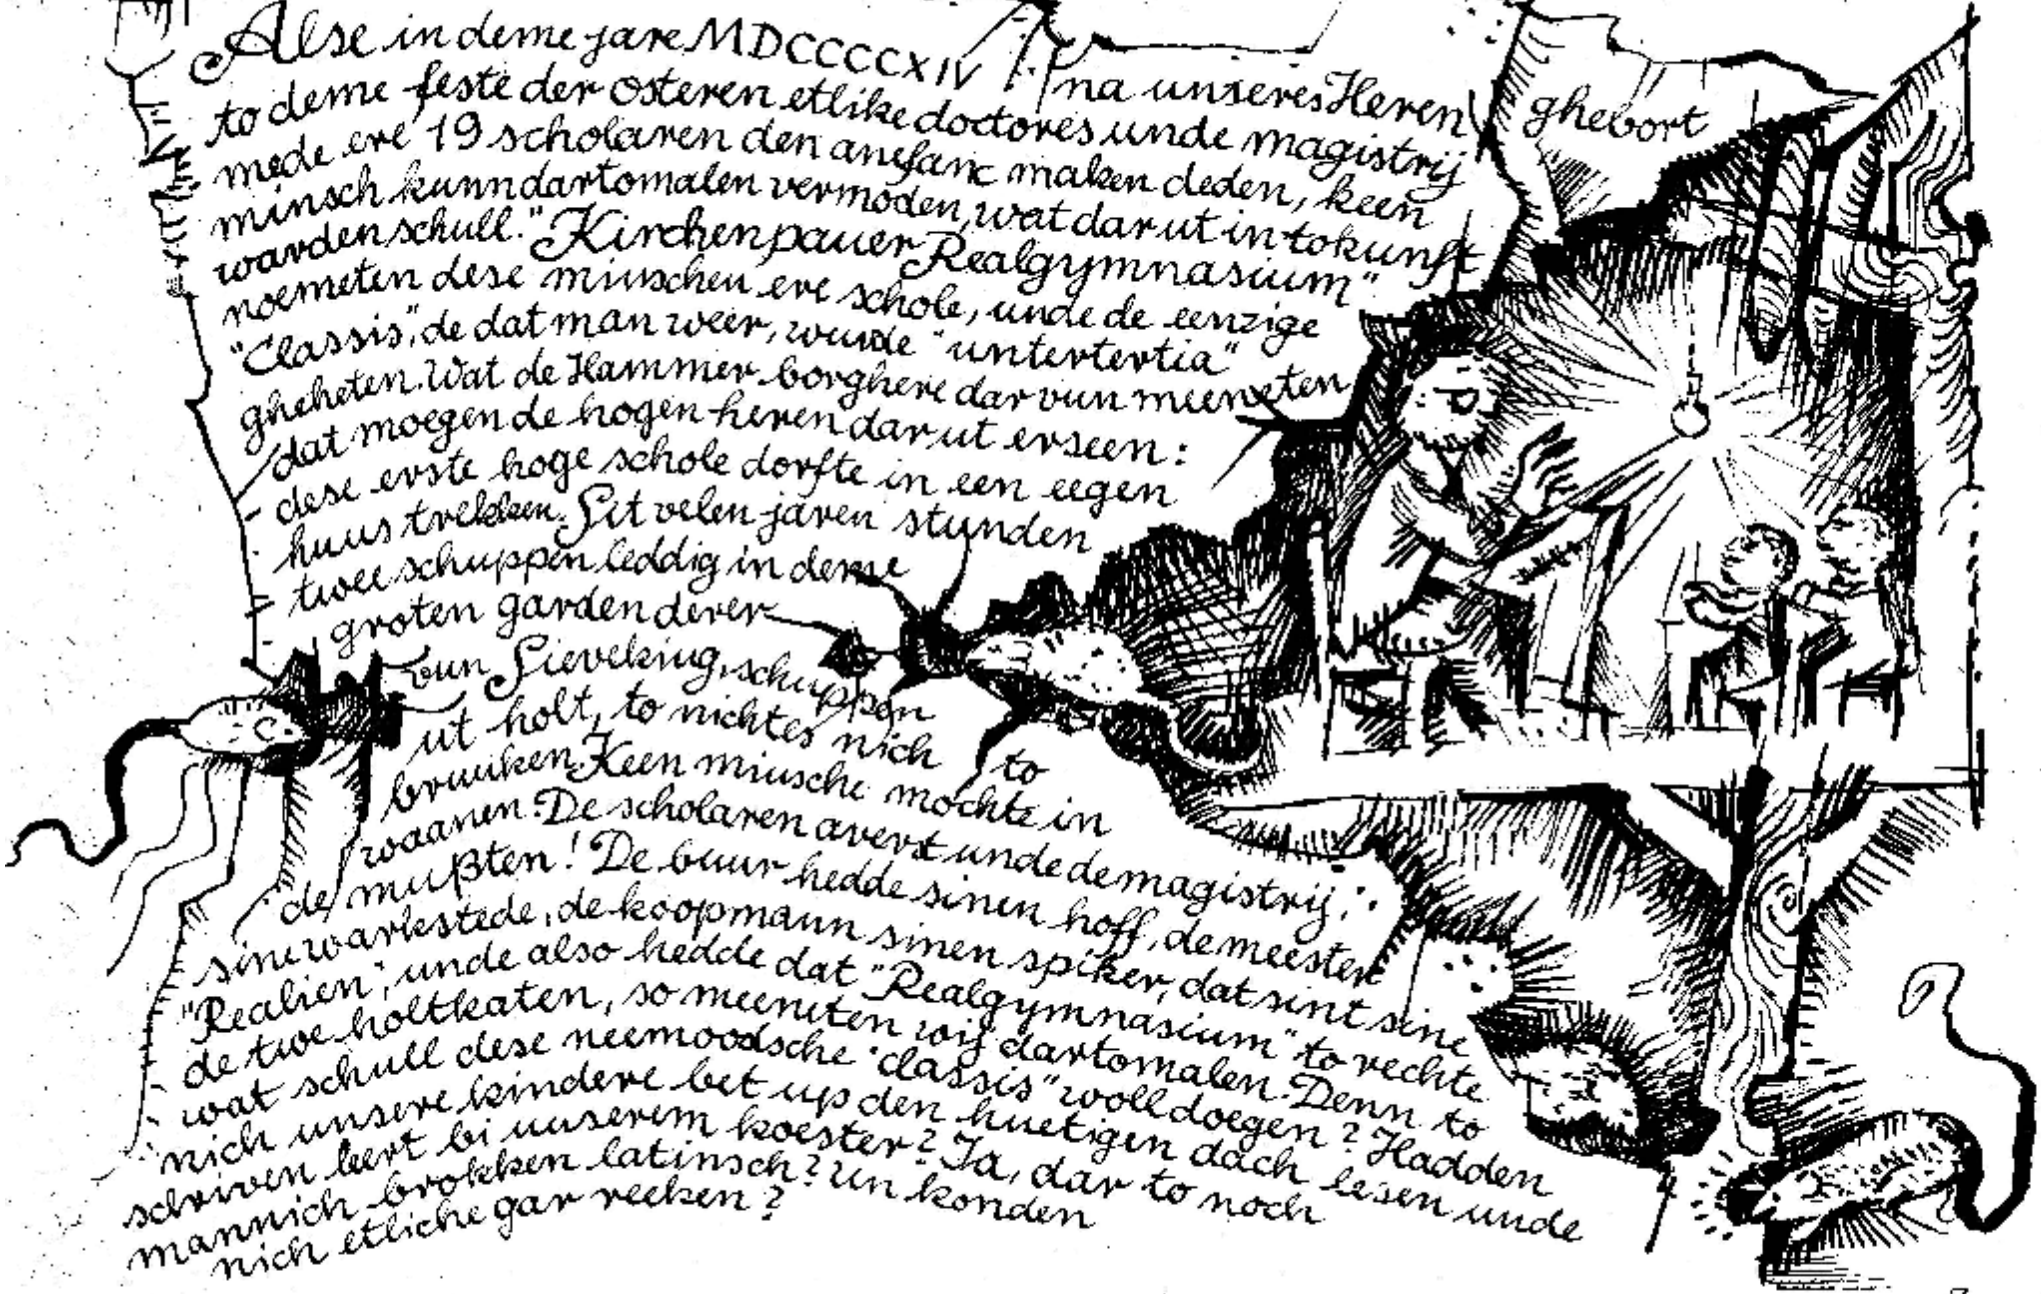 Alse in deme jare MDCCCCXIV na unseres Heren ghebort
to deme feste der osteren etlike doctores unde magistrij
mede ere 19 scholaren den anefanc maken deden, keen
minsch kunn dartomalen vermoden, wat dar ut in tokunft
warden schull. "Kirchenpauer Realgymnasium"
noemeten dese minschen ere schole, unde de eenzige
"Classis", de dat man weer, wurde "untertertia"
gheheten. Wat de Hammer borghere dar vun meeneten
dat moegen de hogen heren dar ut erseen:
dese erste hoge schole dorfte in een eegen
huus trekken. Sit velen jaren stunden
twee schuppen leddig in deme
groten garden derer
vun Sieveking, schuppen
ut holt, to nichtes nich to
bruuken. Keen minsche mochte in
waanen. De scholaren averst unde de magistrij,
de mußten! De buur hedde sinen hoff, de meester
sine warkstede, de koopmann sinen spiker, dat sint sine
"Realien", unde also hedde dat "Realgymnasium" to rechte
de twe holtkaten, so meeneten wij dartomalen. Denn to
wat schull dese neemoodsche "classis" woll doegen? Hadden
nich unsere kindere bet up den huetigen dach lesen unde
schriven leert bi unserem koester? Ja, dar to noch
mannich brokken latinsch? Un konden
nich etliche gar reeken?